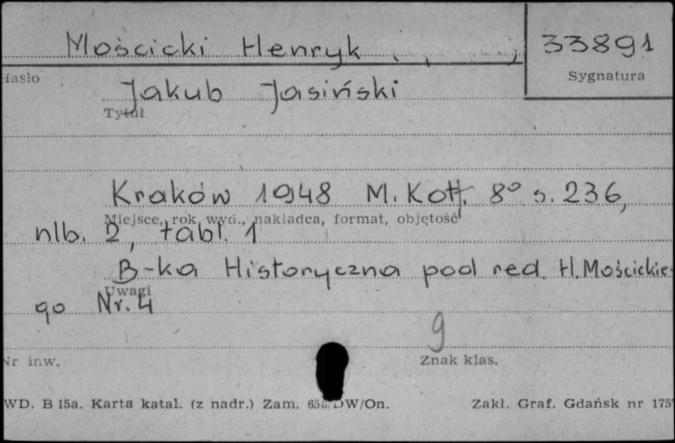 Mościcki Henryk
33891
Hasło
Sygnatura
Jakub Jasiński
Tytuł
Kraków 1948 M. Kott. 8° s. 236,
Miejsce, rok wyd., nakładca, format, objętość
nlb. 2, tabl. 1
B-ka Historyczna pod red. H. Mościckie-
Uwagi
go Nr. 4
g
Nr inw.
Znak klas.
WD. B 15a. Karta katal. (z nadr.) Zam. DW/On.
Zakł. Graf. Gdańsk nr 175